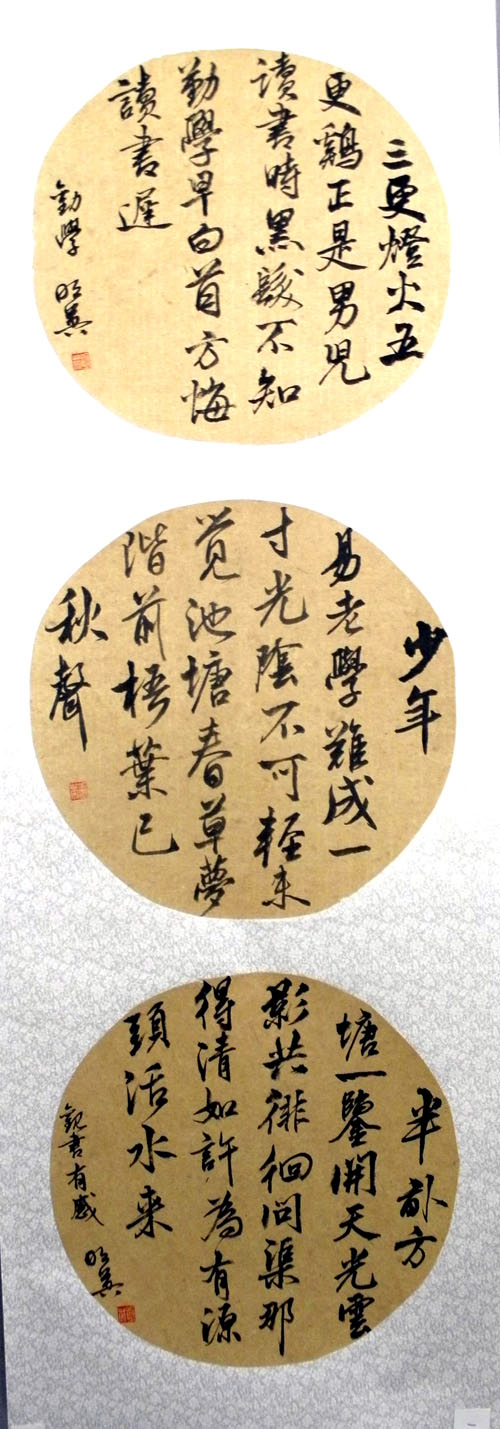 三更燈火五
更鷄正是男兒
讀書時黑髮不知
勤學早白首方悔
讀書遲
勸學
少年
易老學難成一
寸光陰不可輕未
覺池塘春草夢
階前梧葉已
秋聲
半畝方
塘一鑒開天光雲
影共徘徊問渠那
得清如許為有源
頭活水来
觀書有感